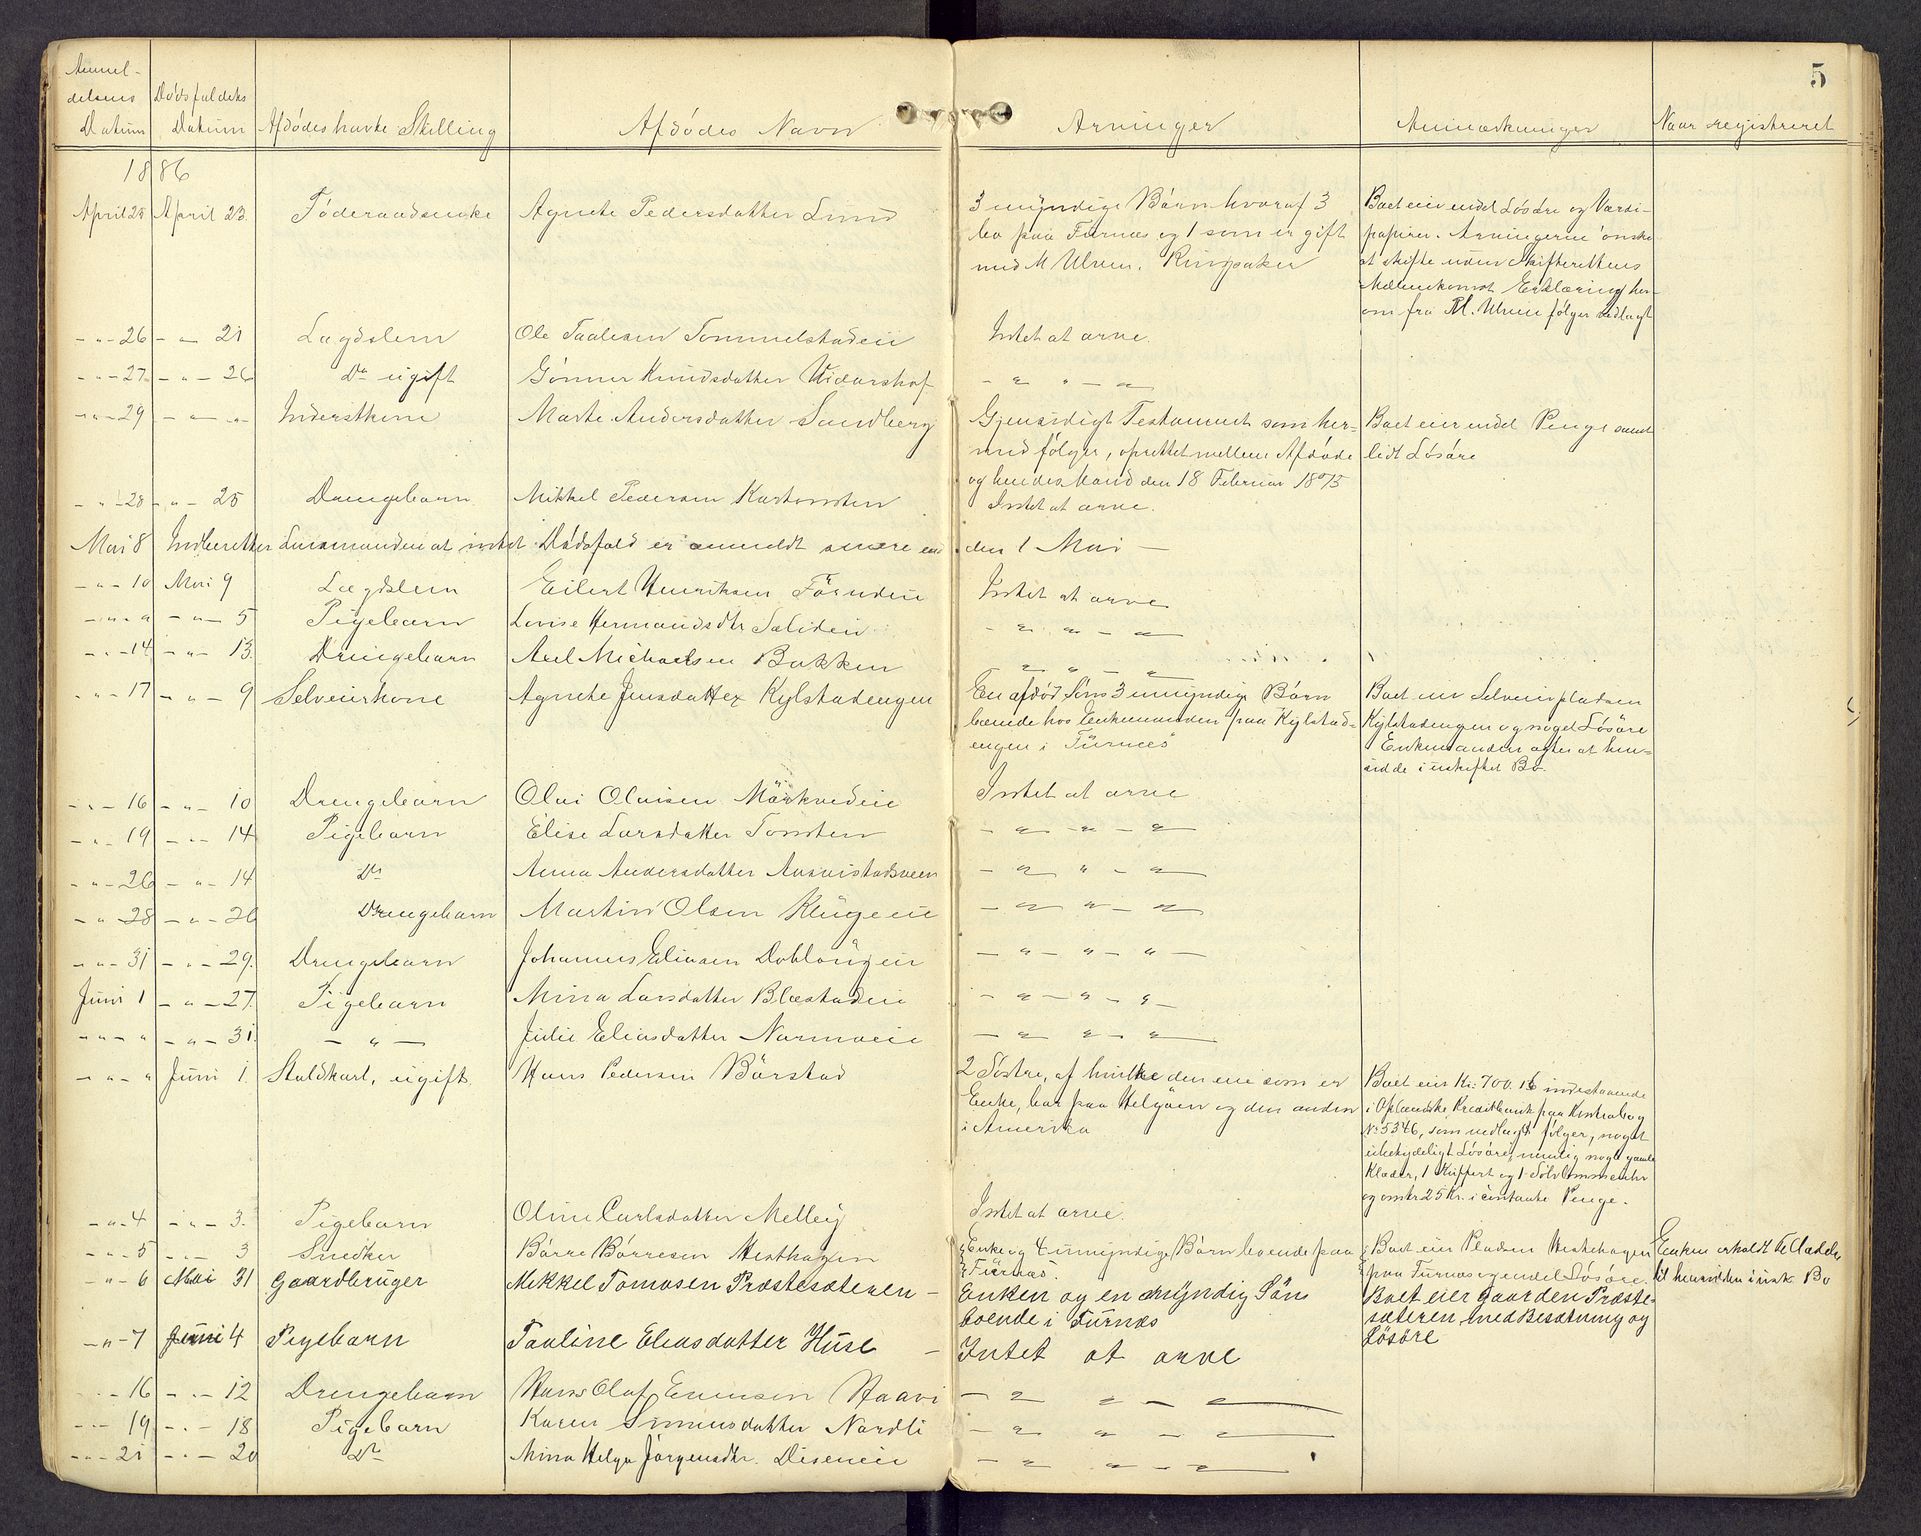 5
Anmel-
delsens
Datum
Dødsfaldets
Datum
Afdødes havte Stilling
Afdødes Navn
Arvinger
Anmærkninger
Naar registreret
1886
April 25 April 23. Føderaadsenke Agnete Pedersdatter Lund
3 myndige Børn hvoraf 3
bo paa Furnæs og 1 som er gift
med M Ulven, Ringsaker
Boet eier endel Løsøre og Værdi-
papirer. Arvingerne ønske
at skifte uden Skifterettens
Mellemkomst Erklæring her-
om fra M. Ulven følger vedlagt
- " - 26 - " - 21 Lægdslem Ole Paulsen Tommelstadeie Intet at arve.
- " - 27 - " - 26 Do ugift Gönner Knudsdatter Vidarshof - " " - "
- " - 29 - " - " Inderstkone Marte Andersdatter Sandberg
Gjensidigt Testament som her-
med følger, oprettet mellem Afdøde
og hendes Mand den 18 Februar 1875
Boet eier endel Penge samt
lidt Løsøre
- " - 28 - " - 25 Drengebarn Mikkel Pedersen Karlonsten Intet at arve.
Mai 8 Indberetter Lensmanden at intet Dødsfald er anmeldt senere end den 1 Mai -
- " - 10 Mai 9 Lægdslem Eilert Henriksen Förudeie Intet at arve
- " - " - " - 5 Pigebarn Lovise Hermandsdtr Salideie - " " - "
- " - 14 - " - 13. Drengebarn Axel Michaelsen Bakken " " - "
- " - 17 - " - 9 Selveierkone Agnete Jensdatter Kylstadengen
En afdød Søns 3 umyndige Børn
boende hos Enkemanden paa Kylstad-
engen i Furnæs
Boet eier Selveierpladsen
Kylstadengen og noget Løsøre
Enkemanden agter at hen-
sidde i uskiftet Bo.
- " - 16 - " - 10 Drengebarn Olai Olaisen Mörkvedeie Intet at arve
- " - 19 - " - 14 Pigebarn Elise Larsdatter Tonsten - " - " - "
- " - 26 - " - 14 Do Anna Andersdatter Aasvistadsveen - " " - "
- " - 28 - " - 26 Drengebarn Martin Olsen Klugeeie - " " - "
- " - 31 - " - 29. Drengebarn Johannes Eliasen Doblougeie - " - " - " -
Juni 1 - " - 27. Pigebarn Mina Larsdatter Blæstadeie - " - " - " -
- " - " - " - 31. - " - Julie Eliasdatter Narmoeie - " " - "
- " - " Juni 1. Staldkarl, ugift. Hans Pedersen Börstad
2 Søstre, af hvilke den ene som er
Enke, bor paa Helgøen og den anden
i Amerika
Boet eier Kr. 700.16 indestaaende
i Oplandske Kreditbank paa Kontrabog
No 5346, som vedlagt følger, noget
ubetydeligt Løsøre, nemlig nogle gamle
Klæder, 1 Kuffert og 1 Sølvlommeuhr
og omtr 25 Kr. i contante Penge.
- " - 4 - " - 3. Pigebarn Oline Carlsdatter Melbey Intet at arve.
- " - 5 - " - 3 Snedker Börre Börresen Hesthagen
Enke og 4 umyndige Børn boende paa
Furnæs.
Boet eier Pladsen Hestehagen
paa Furnæs og endel Løsøre.
Enken erholdt Tilladelse
til hensidden i usk. Bo
- " - 6 Mai 31 Gaardbruger Mekkel Tomasen Præstesæteren -
Enken og en myndig Søn
boende i Furnæs
Boet eier Gaarden Præste-
sæteren med Besætning og
Løsøre
- " - 7 Juni 4 Pigebarn Pauline Eleasdatter Huse - Intet at arve
- 16 - " - 12 Drengebarn Hans Olaf Evensen Haavi - " " - "
- " - 19 - " - 18 Pigebarn Karen Simensdatter Nordli - " " - "
- " - 21 - " - 20 Do Mina Helga Jørgensdtr. Diseneie - " " - "